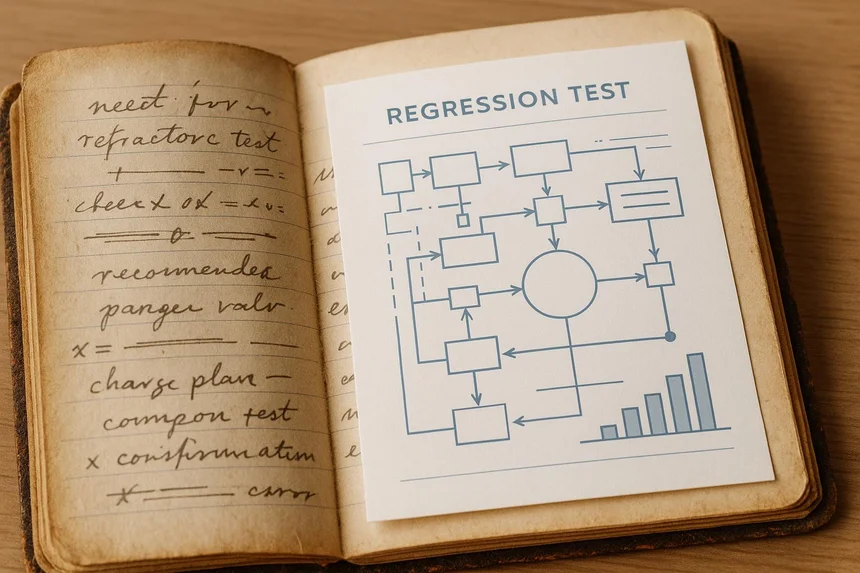 need for
refractorc test
check ox = x v =
recommended
panger valv.
x =
charge plan —
compon test
x consfirmation
REGRESSION TEST